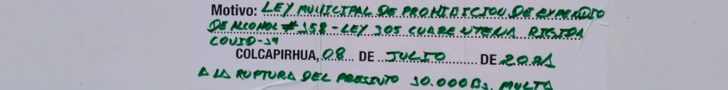 Motivo: LEY MUNICIPAL DE PROHIDICION DE EXPENDIO
DE ALCOHOL # 158 - LEY 305 CUARENTENA RIGIDA
COVID-19
COLCAPIRHUA, 08 DE JULIO DE 2021
A LA RUPTURA DEL PRESENTO 10.000 Bs. MULTA